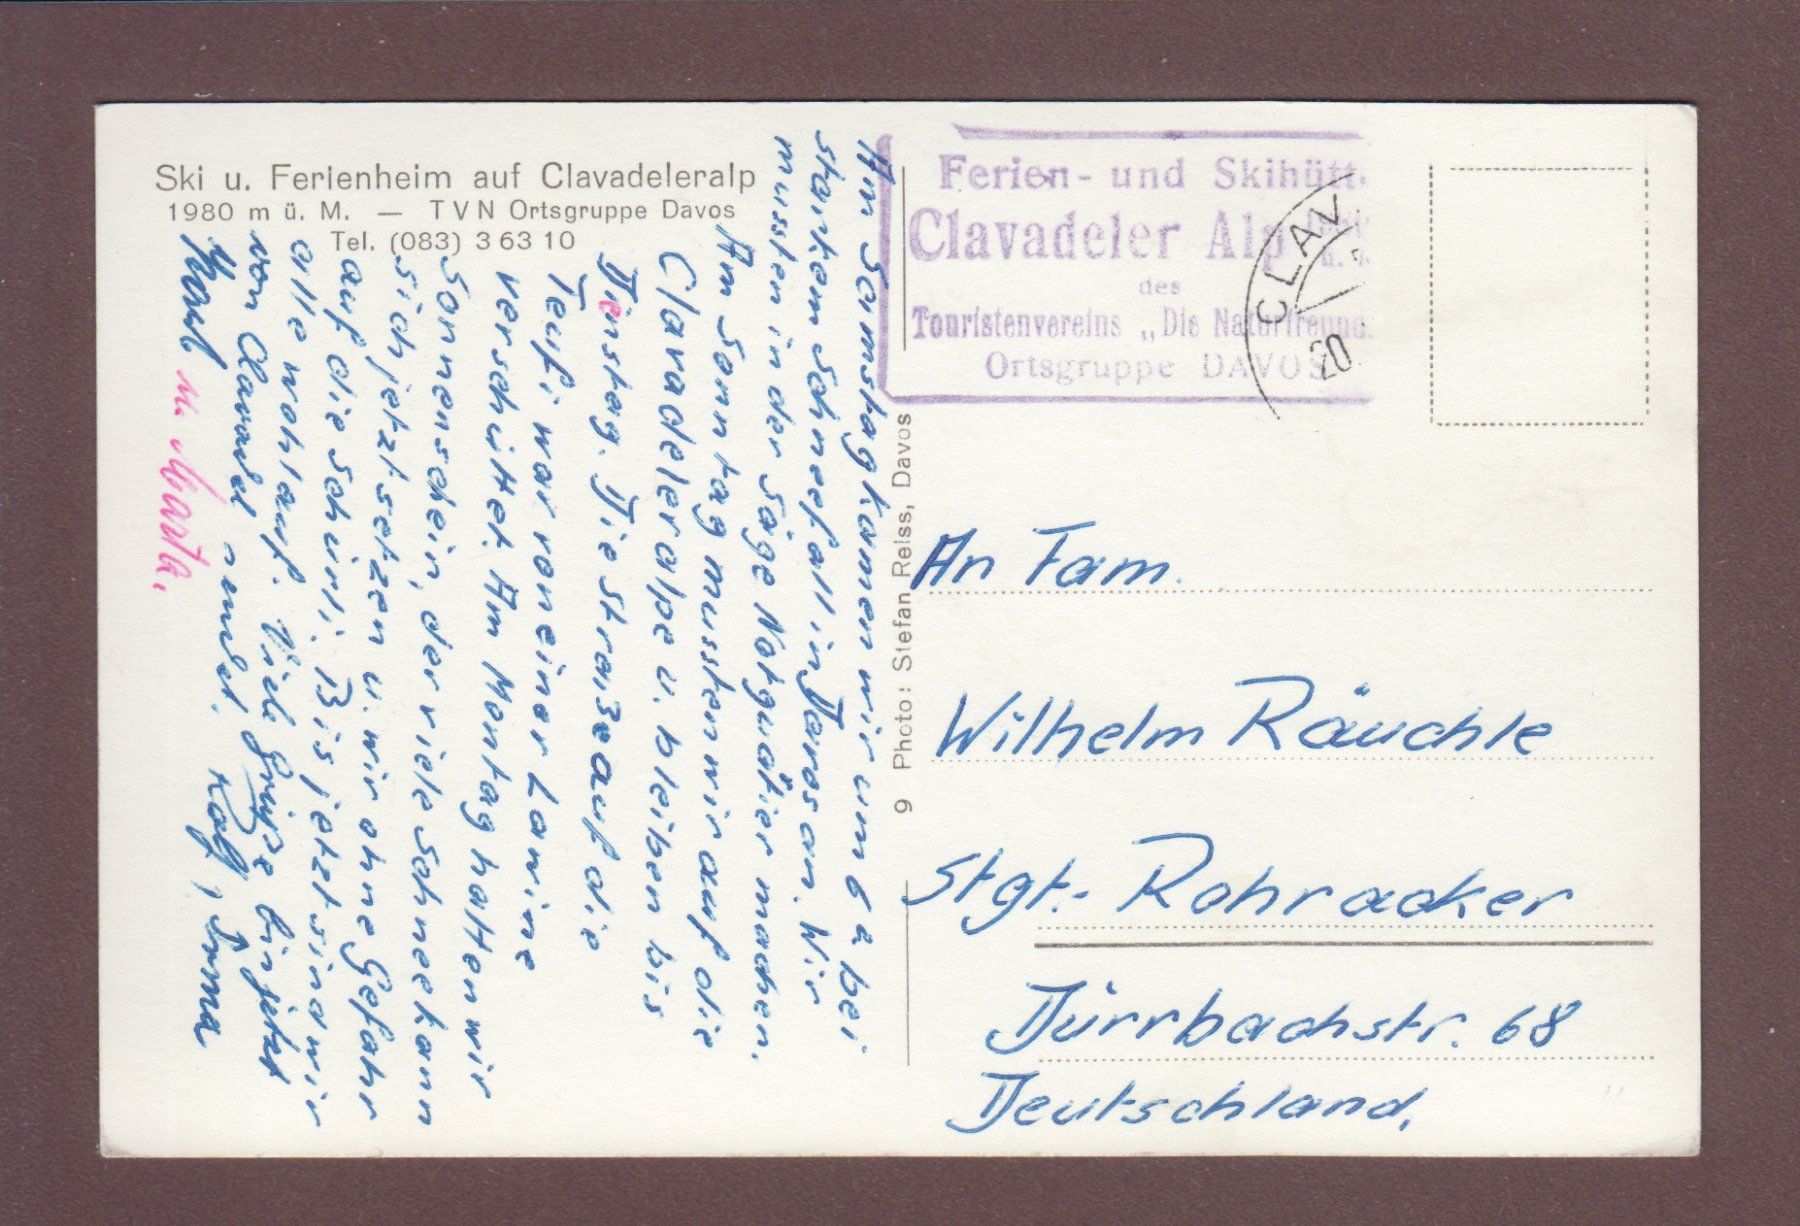 Ski u. Ferienheim auf Clavadeleralp
1980 m ü. M. — TVN Ortsgruppe Davos
Tel. (083) 3 63 10
Am Samstag kamen wir um 6 bei
starkem Schneefall in Davos an. Wir
mussten in der Säge Notquatier machen.
Am Sonntag mussten wir auf die
Claradeleralpe u. bleiben bis
Dienstag. Die Straße auf die
Teufi war von einer Lawine
verschüttet. Am Montag hatten wir
Sonnenschein, der viele Schnee kann
sich jetzt setzen u. wir ohne Gefahr
auf die Schürli. Bis jetzt sind wir
alle wohlauf. Viele Grüße
von Clavadel sendet. Rolf, Irma
u. Marta.
Ferien- und Skihütt
Clavadeler Alp
des
Touristenvereins „Die Naturfreund
Ortsgruppe DAVOS
CLAV
20
9 Photo: Stefan Reiss, Davos
An Fam.
Wilhelm Räuchle
Stgt.- Rohracker
Dürrbachstr. 68
Deutschland.